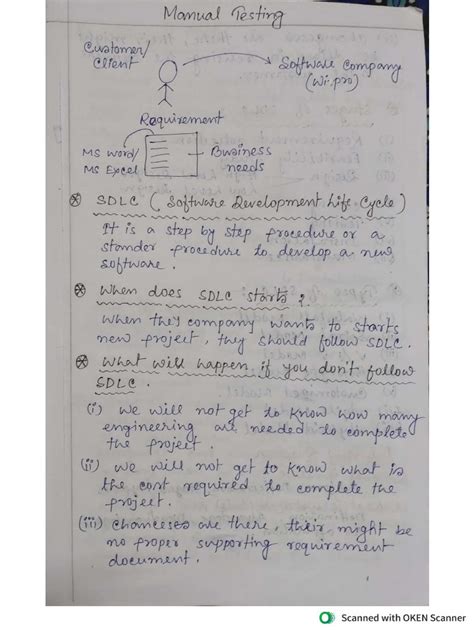 Manual Testing
Customer/
Client
Software company
(Wi.pro)
Requirement
MS Word/
MS Excel
Business
needs
SDLC (Software Development Life Cycle)
It is a step by step procedure or a
stander procedure to develop a new
software.
When does SDLC starts?
When they company wants to starts
new project, they should follow SDLC.
What will happen if you don't follow
SDLC.
(i) We will not get to know how many
engineering are needed to complete
the project.
(ii) We will not get to know what is
the cost required to complete the
project.
(iii) Chanceses are there, their might be
no proper supporting requirement
document.
Scanned with OKEN Scanner